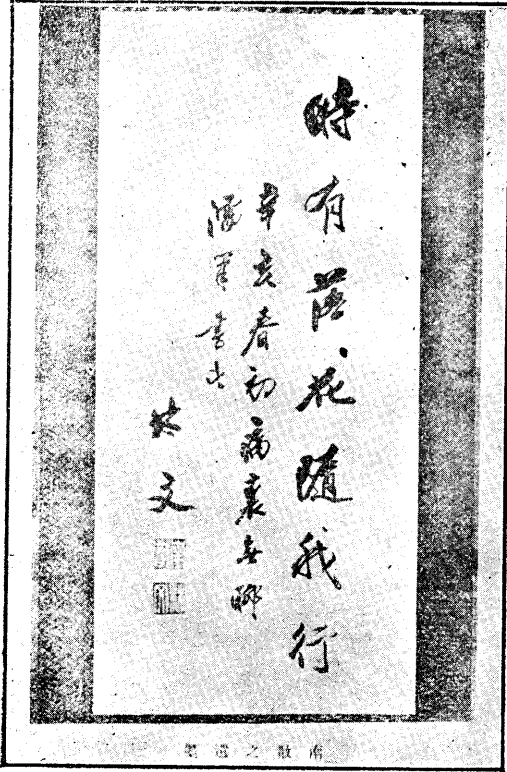 時有落花隨我行
辛亥春初病裏無聊
書此
林文
南散之遺墨